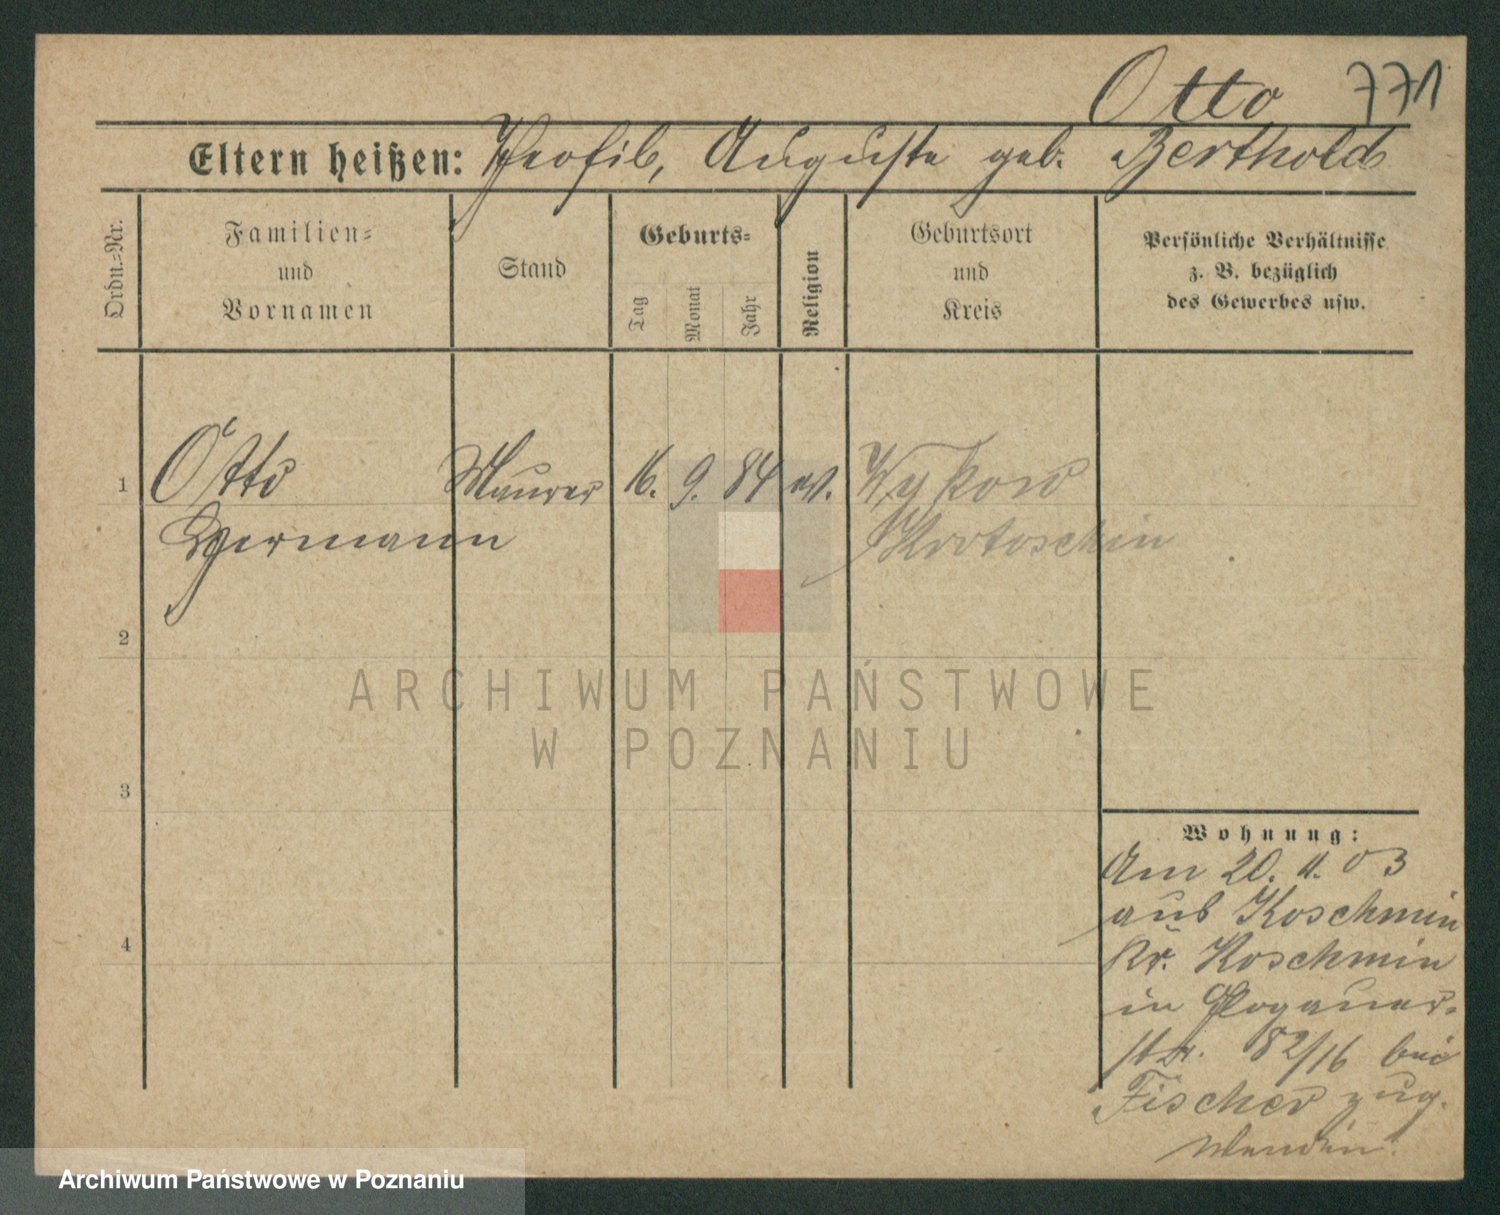 Otto 771
Eltern heißen: Theofil, Auguste geb. Berthold
Ordn.-Nr.
Familien-
und
Vornamen
Stand
Geburts-
Tag
Monat
Jahr
Religion
Geburtsort
und
Kreis
Persönliche Verhältnisse
z. B. bezüglich
des Gewerbes usw.
1 Otto Maurer 16. 9. 84 ev. Wykow
Hermann Krotoschin
2
3
4
Wohnung:
Am 20. 11. 03
aus Koschmin
Kr. Koschmin
in Glogauer-
str. 82/16 bei
Fischer zug.
ARCHIWUM PAŃSTWOWE
W POZNANIU
Archiwum Państwowe w Poznaniu